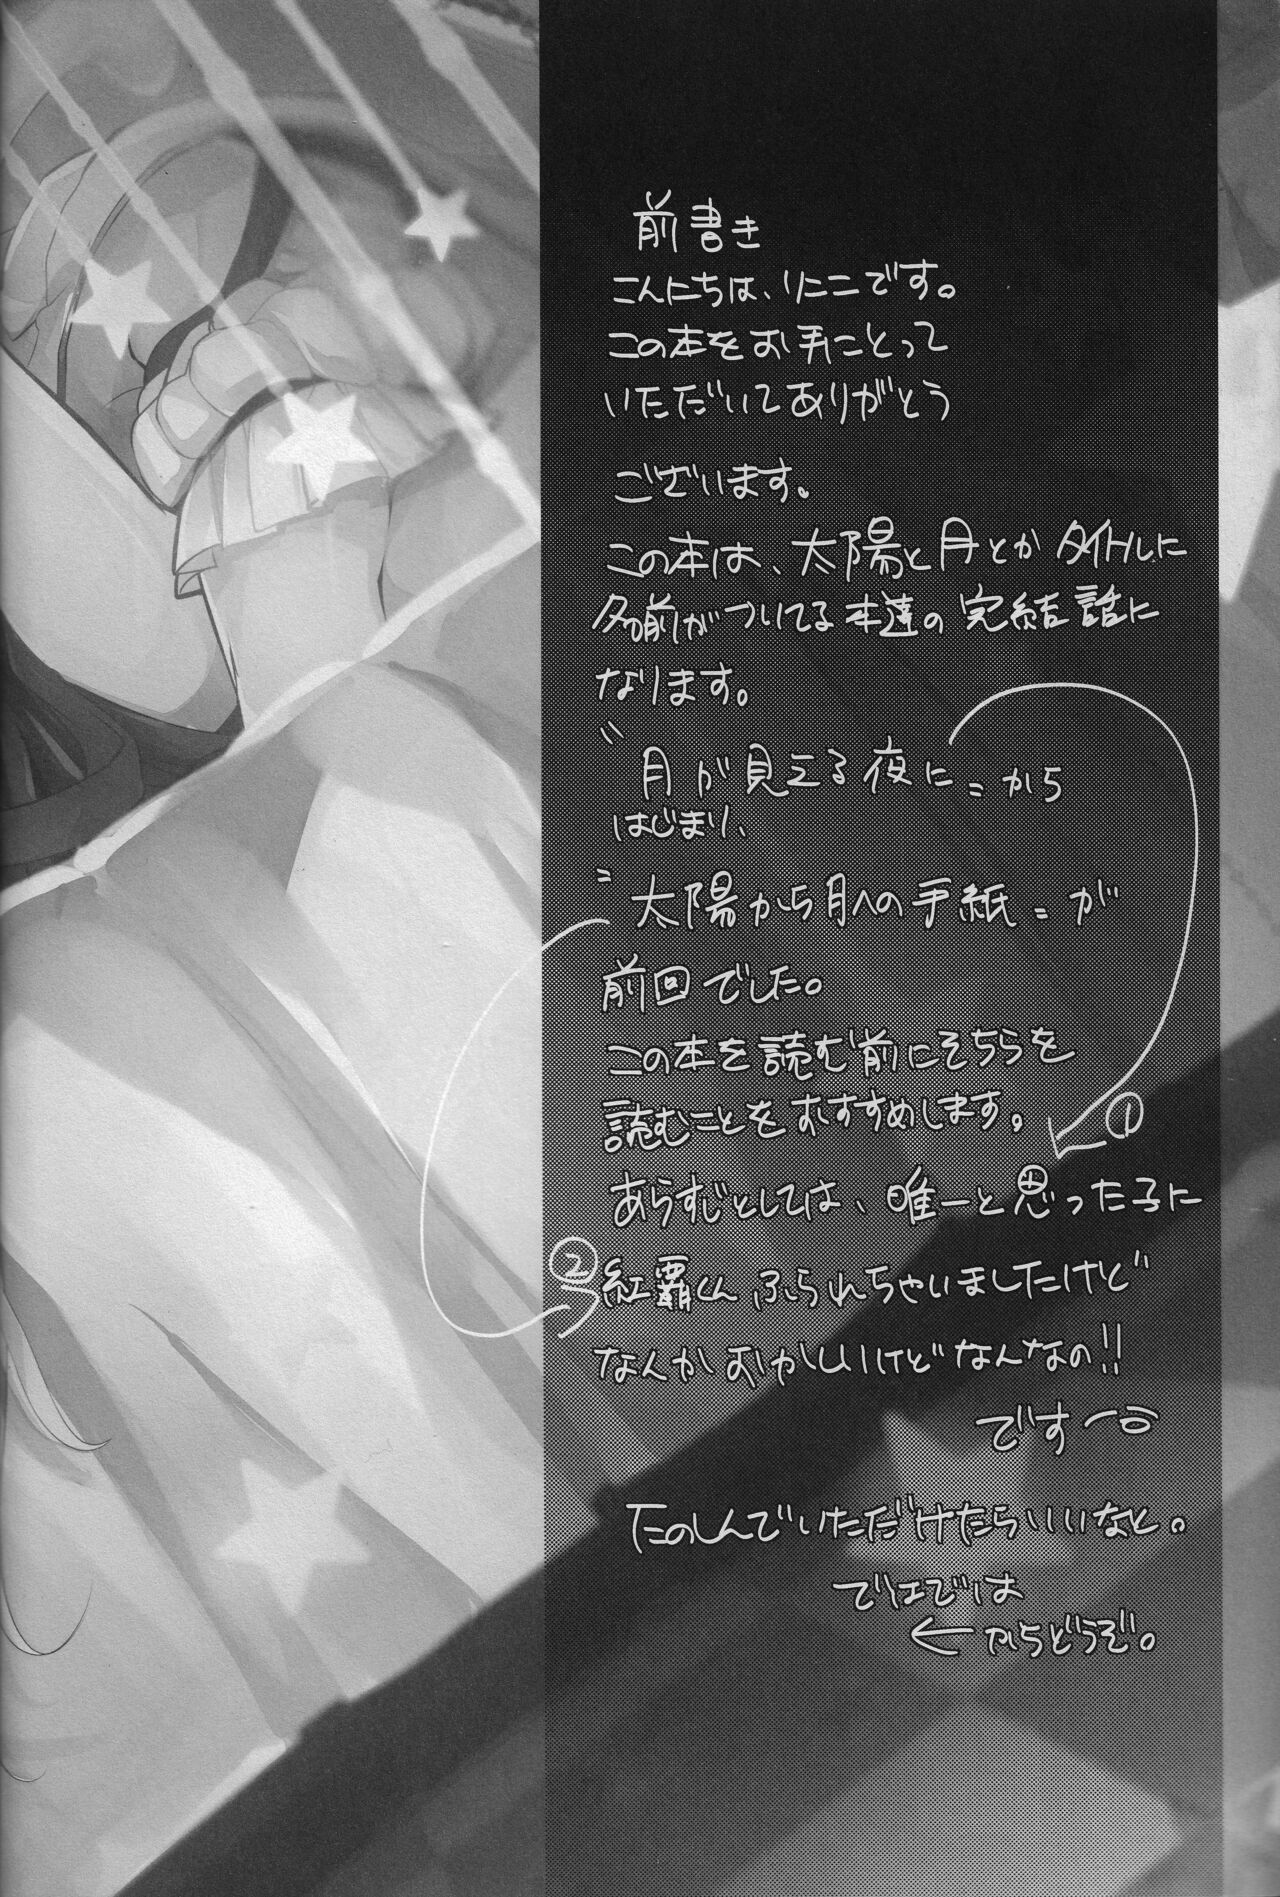 前書き
こんにちは、りにこです。
この本をお手にとって
いただいてありがとう
ございます。
この本は、太陽と月とかタイトルに
名前がついてる本達の完結話に
なります。
〝月が見える夜に〟から
はじまり、
〝太陽から月への手紙〟が
前回でした。
この本を読む前にそちらを
読むことをおすすめします。
①
あらすじとしては、唯一と思った子に
②
紅覇くんふられちゃいましたけど
なんかおかしいけどなんなの!!
です
たのしんでいただけたらいいなと。
ではでは
←からどうぞ。